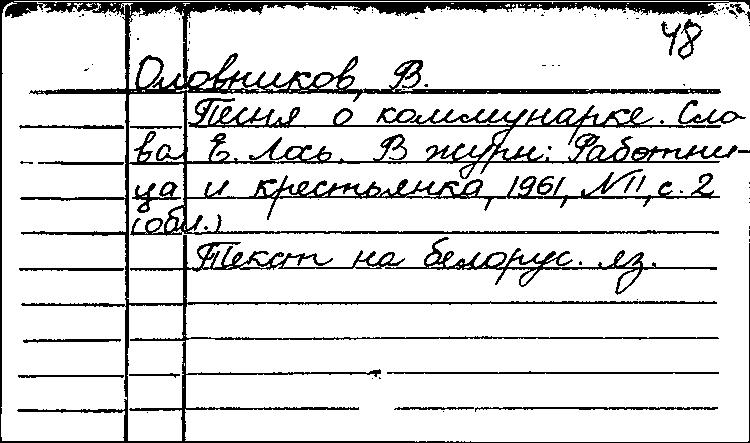 48
Оловников, В.
Песня о коммунарке. Сло
ва Е. Лось. В журн: Работни-
ца и крестьянка, 1961, №11, с. 2
(обл.)
Текст на белорус. яз.